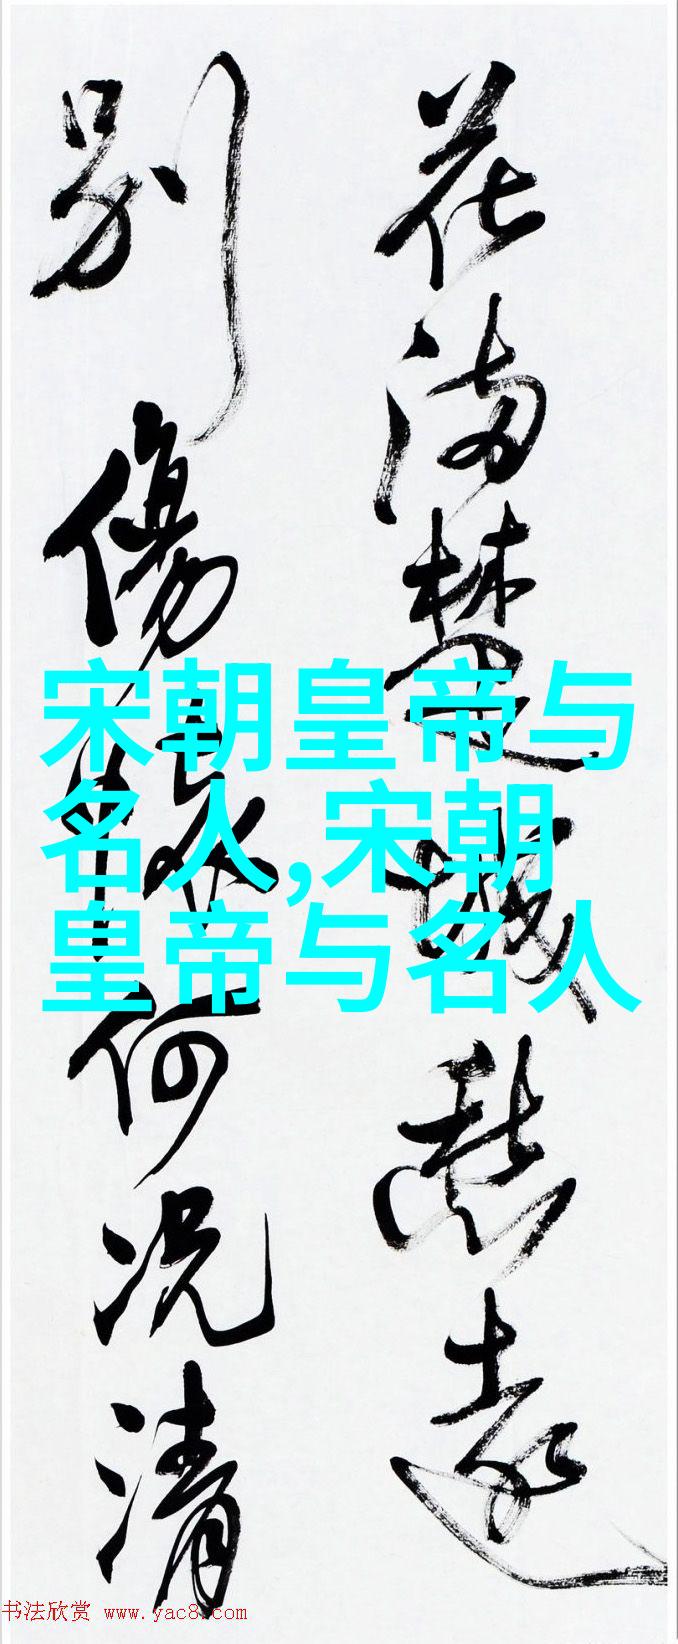 花滿楚城愁遠
別傷懷何况清
宋朝皇帝与
名人,宋朝
皇帝与名人
书法欣赏 www.yac8.com